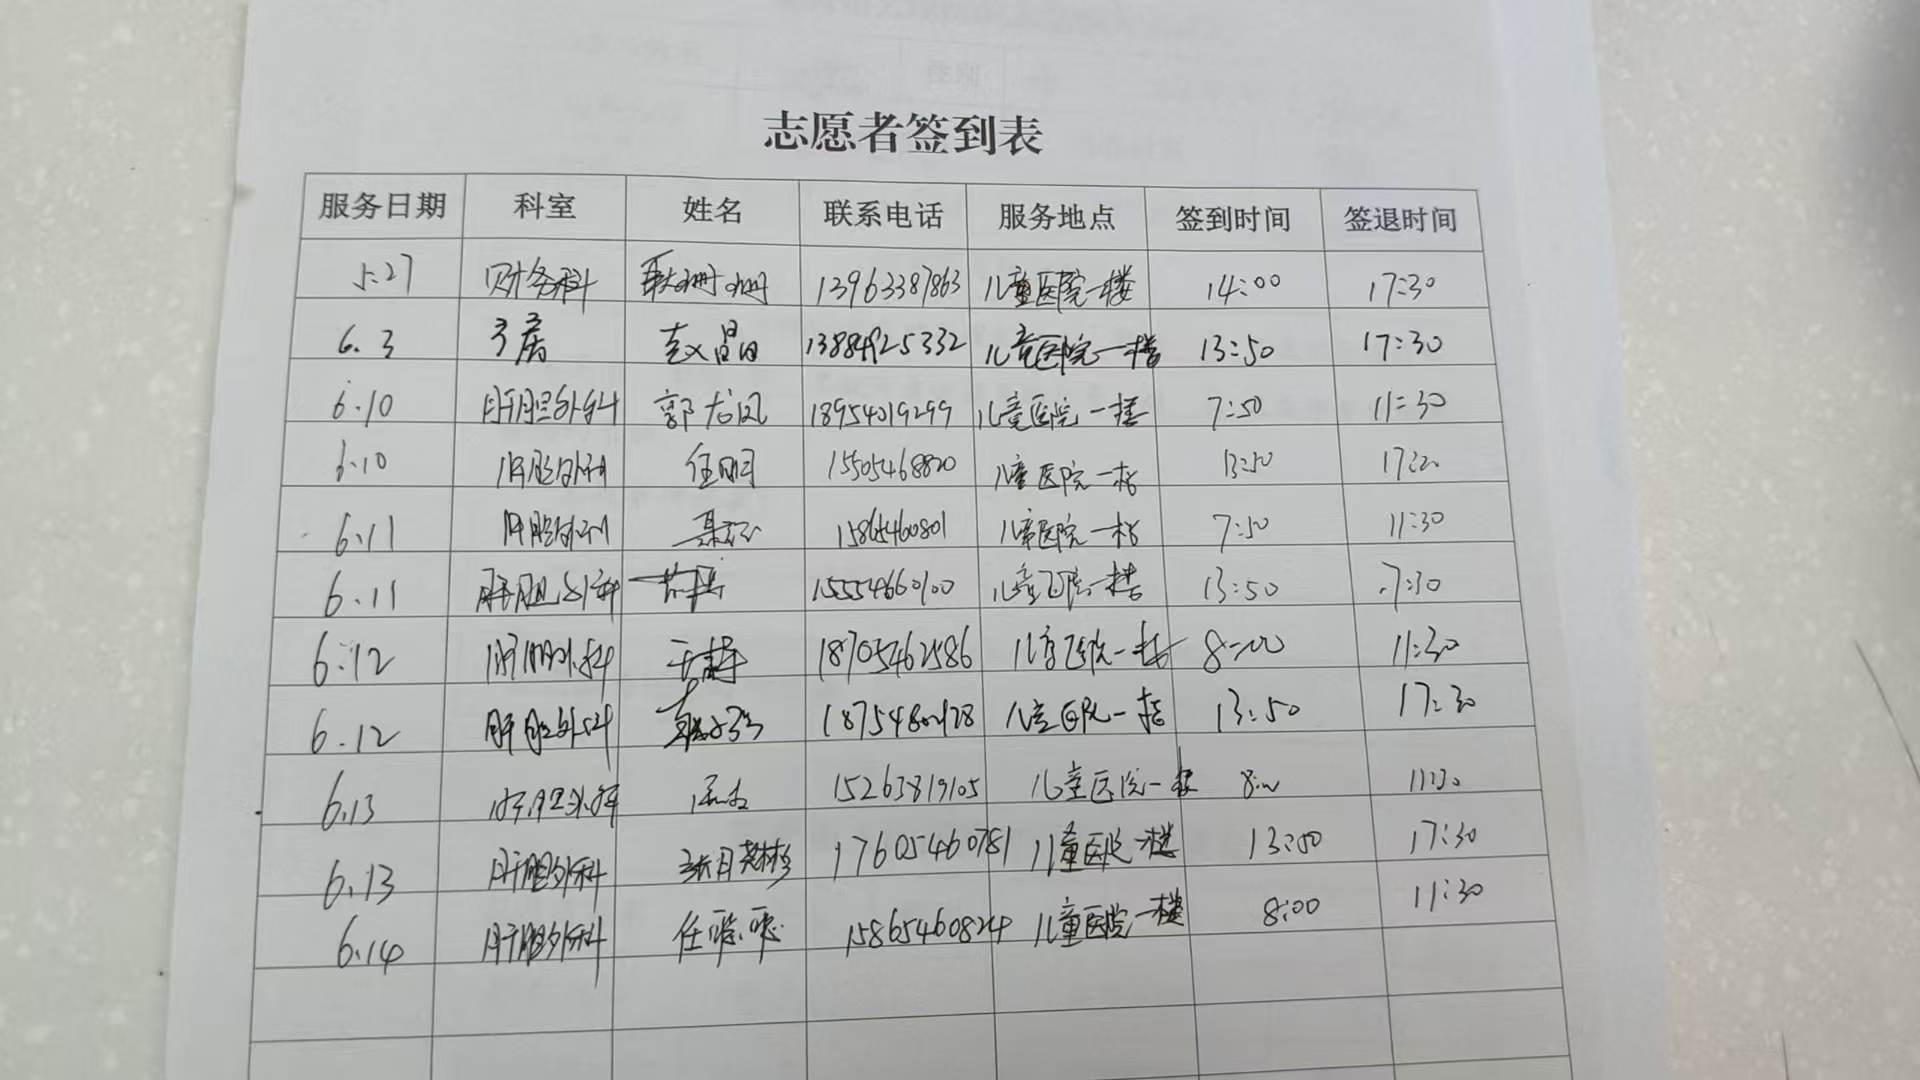 志愿者签到表
服务日期 科室 姓名 联系电话 服务地点 签到时间 签退时间
5.27 财务科 耿珊珊 13963387863 儿童医院一楼 14:00 17:30
6.3 赵晶 13884925332 儿童医院一楼 13:50 17:30
6.10 肝胆外科 郭龙凤 18954019299 儿童医院一楼 7:50 11:30
6.10 肝胆外科 任明 15505468820 儿童医院一楼 13:50 17:20
6.11 肝胆外科 15865460801 儿童医院一楼 7:50 11:30
6.11 肝胆外科 儿童医院一楼 13:50 17:30
6.12 肝胆外科 18705462586 儿童医院一楼 8:00 11:30
6.12 肝胆外科 儿童医院一楼 13:50 17:30
6.13 肝胆外科 15263819105 儿童医院一楼 8:00 11:30
6.13 肝胆外科 17605460781 儿童医院一楼 13:50 17:30
6.14 肝胆外科 任聪聪 15865460824 儿童医院一楼 8:00 11:30